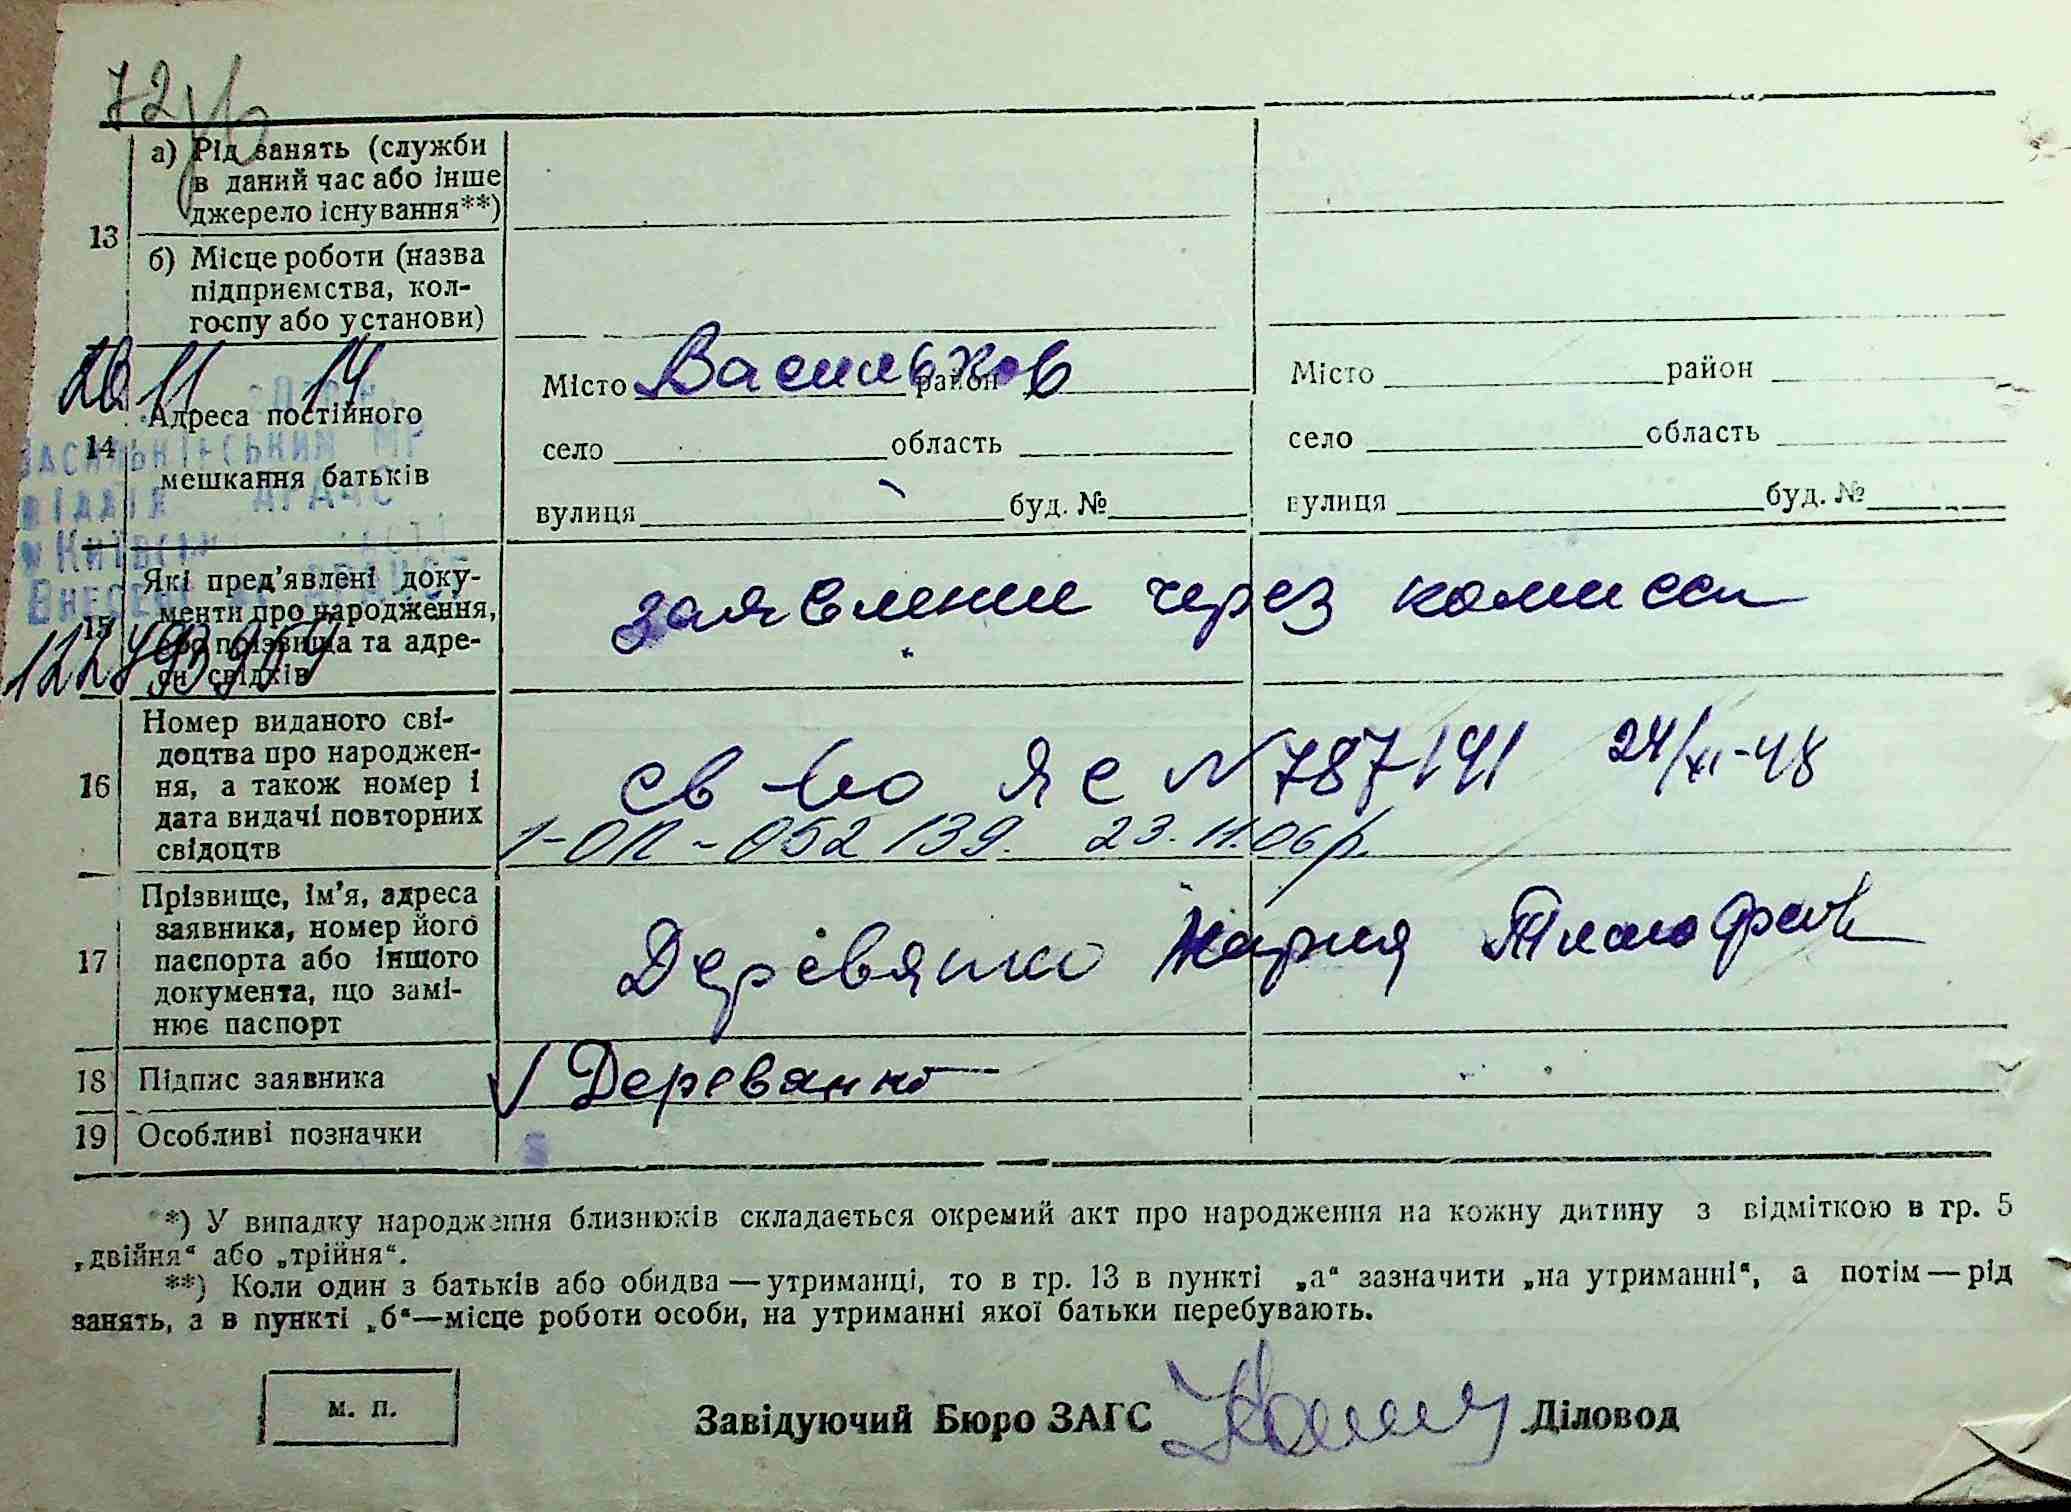 72
13
а) Рід занять (служби
в даний час або інше
джерело існування**)
б) Місце роботи (назва
підприємства, кол-
госпу або установи)
20 11 14
14
Адреса постійного
мешкання батьків
Місто Васильков район
село область
вулиця буд. №
Місто район
село область
вулиця буд. №
Васильківським МР
відділ ДРАЦС
Київсь
Внесен
122493959
15
Які пред'явлені доку-
менти про народження,
або прізвища та адре-
си свідків
заявление через комисси
16
Номер виданого сві-
доцтва про народжен-
ня, а також номер і
дата видачі повторних
свідоцтв
св-во ЯС N 787141 24/XI-48
1-ОП-052139. 23.11.06р.
17
Прізвище, ім'я, адреса
заявника, номер його
паспорта або іншого
документа, що замі-
нює паспорт
Деревянко Мария Тимофеев
18 Підпис заявника
Деревянко
19 Особливі позначки
*) У випадку народження близнюків складається окремий акт про народження на кожну дитину з відміткою в гр. 5
„двійня“ або „трійня“.
**) Коли один з батьків або обидва — утриманці, то в гр. 13 в пункті „а“ зазначити „на утриманні“, а потім — рід
занять, а в пункті „б“—місце роботи особи, на утриманні якої батьки перебувають.
м. п.
Завідуючий Бюро ЗАГС Діловод